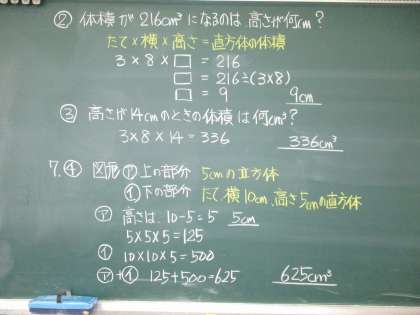 ② 体積が216cm³になるのは、高さが何cm?
たて×横×高さ=直方体の体積
3×8×□=216
□=216÷(3×8)
□=9 9cm
③ 高さが14cmのときの体積は何cm³?
3×8×14=336 336cm³
7.④ 図形 ㋐上の部分 5cmの立方体
㋑下の部分 たて、横10cm、高さ5cmの直方体
㋐ 高さは、10-5=5 5cm
5×5×5=125
㋑ 10×10×5=500
㋐+㋑ 125+500=625 625cm³